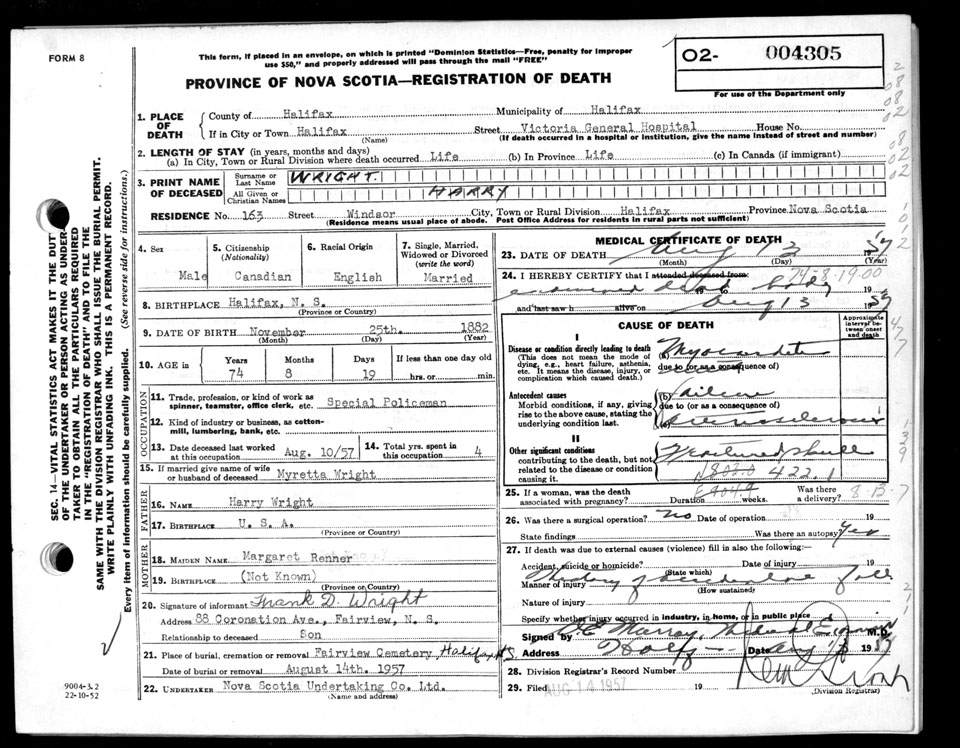 FORM 8
This form, if placed in an envelope, on which is printed "Dominion Statistics—Free, penalty for improper
use $50," and properly addressed will pass through the mail "FREE"
PROVINCE OF NOVA SCOTIA—REGISTRATION OF DEATH
O2- 004305
For use of the Department only
1. PLACE OF DEATH
County of Halifax Municipality of Halifax
If in City or Town Halifax Street Victoria General Hospital House No.
(Name) (If death occurred in a hospital or institution, give the name instead of street and number)
2. LENGTH OF STAY (in years, months and days)
(a) In City, Town or Rural Division where death occurred Life (b) In Province Life (c) In Canada (if immigrant)
3. PRINT NAME OF DECEASED
Surname or Last Name WRIGHT.
All Given or Christian Names HARRY
RESIDENCE No. 163 Street Windsor City, Town or Rural Division Halifax Province Nova Scotia
(Residence means usual place of abode. Post Office Address for residents in rural parts not sufficient)
4. Sex
Male
5. Citizenship
(Nationality)
Canadian
6. Racial Origin
English
7. Single, Married,
Widowed or Divorced
(write the word)
Married
8. BIRTHPLACE Halifax, N. S.
(Province or Country)
9. DATE OF BIRTH November 25th. 1882
(Month) (Day) (Year)
10. AGE in
Years Months Days If less than one day old
74 8 19 hrs. or min.
OCCUPATION
11. Trade, profession, or kind of work as
spinner, teamster, office clerk, etc. Special Policeman
12. Kind of industry or business, as cotton-
mill, lumbering, bank, etc.
13. Date deceased last worked
at this occupation Aug. 10/57
14. Total yrs. spent in
this occupation 4
15. If married give name of wife
or husband of deceased Myretta Wright
FATHER
16. NAME Harry Wright
17. BIRTHPLACE U. S. A.
MOTHER
18. MAIDEN NAME Margaret Renner
19. BIRTHPLACE (Not Known)
(Province or Country)
20. Signature of informant Frank D. Wright
Address 88 Coronation Ave., Fairview, N. S.
Relationship to deceased Son
21. Place of burial, cremation or removal Fairview Cemetery, Halifax N.S.
Date of burial or removal August 14th. 1957
22. UNDERTAKER Nova Scotia Undertaking Co. Ltd.
(Name and address)
MEDICAL CERTIFICATE OF DEATH
23. DATE OF DEATH Aug 13 1957
(Month) (Day) (Year)
24. I HEREBY CERTIFY that I attended deceased from:
examined dead body 19
and last saw h alive on Aug 13 1957
24-8-19-00
CAUSE OF DEATH
Approximate interval between onset and death
I
Disease or condition directly leading to death
(This does not mean the mode of
dying, e.g., heart failure, asthenia,
etc. It means the disease, injury, or
complication which caused death.)
(a)
due to (or as a consequence of)
Antecedent causes
Morbid conditions, if any, giving
rise to the above cause, stating the
underlying condition last.
(b)
due to (or as a consequence of)
(c)
II
Other significant conditions
contributing to the death, but not
related to the disease or condition
causing it.
Fractured skull
422.1
25. If a woman, was the death
associated with pregnancy? Duration weeks. Was there
a delivery?
26. Was there a surgical operation? No Date of operation 19
State findings Was there an autopsy? Yes
27. If death was due to external causes (violence) fill in also the following:—
Accident, suicide or homicide? Date of injury 19
(State which)
Manner of injury History of accidental fall
(How sustained)
Nature of injury
Specify whether injury occurred in industry, in home, or in public place
Signed by Murray, Medical Examiner M.D.
Address Halifax Date Aug 1957
28. Division Registrar's Record Number
29. Filed AUG 14 1957 19
(Division Registrar)
SEC. 14—VITAL STATISTICS ACT MAKES IT THE DUTY
OF THE UNDERTAKER OR PERSON ACTING AS UNDER-
TAKER TO OBTAIN ALL THE PARTICULARS REQUIRED
IN THE "REGISTRATION OF DEATH" AND TO FILE THE
SAME WITH THE DIVISION REGISTRAR WHO SHALL ISSUE THE BURIAL PERMIT.
WRITE PLAINLY WITH UNFADING INK. THIS IS A PERMANENT RECORD.
Every item of information should be carefully supplied. (See reverse side for instructions.)
9004-3.2
22-10-52